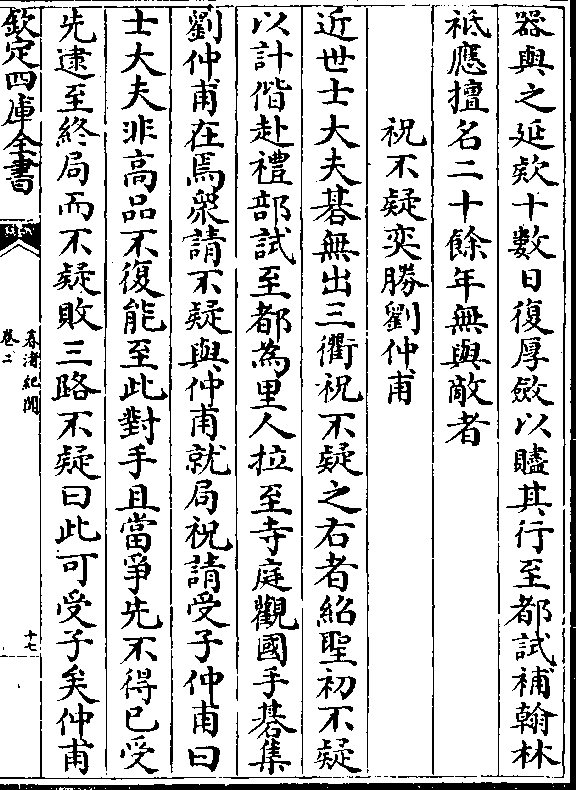 器與之延欵十數日復厚斂以贐其行至都試補翰林
祗應擅名二十餘年無與敵者
祝不疑奕勝劉仲甫
近世士大夫碁無出三衢祝不疑之右者紹聖初不疑
以計偕赴禮部試至都為里人拉至寺庭觀國手碁集
劉仲甫在焉衆請不疑與仲甫就局祝請受子仲甫曰
士大夫非高品不復能至此對手且當爭先不得已受
先逮至終局而不疑敗三路不疑曰此可受子矣仲甫
欽定四庫全書
春渚紀聞
卷二
十七